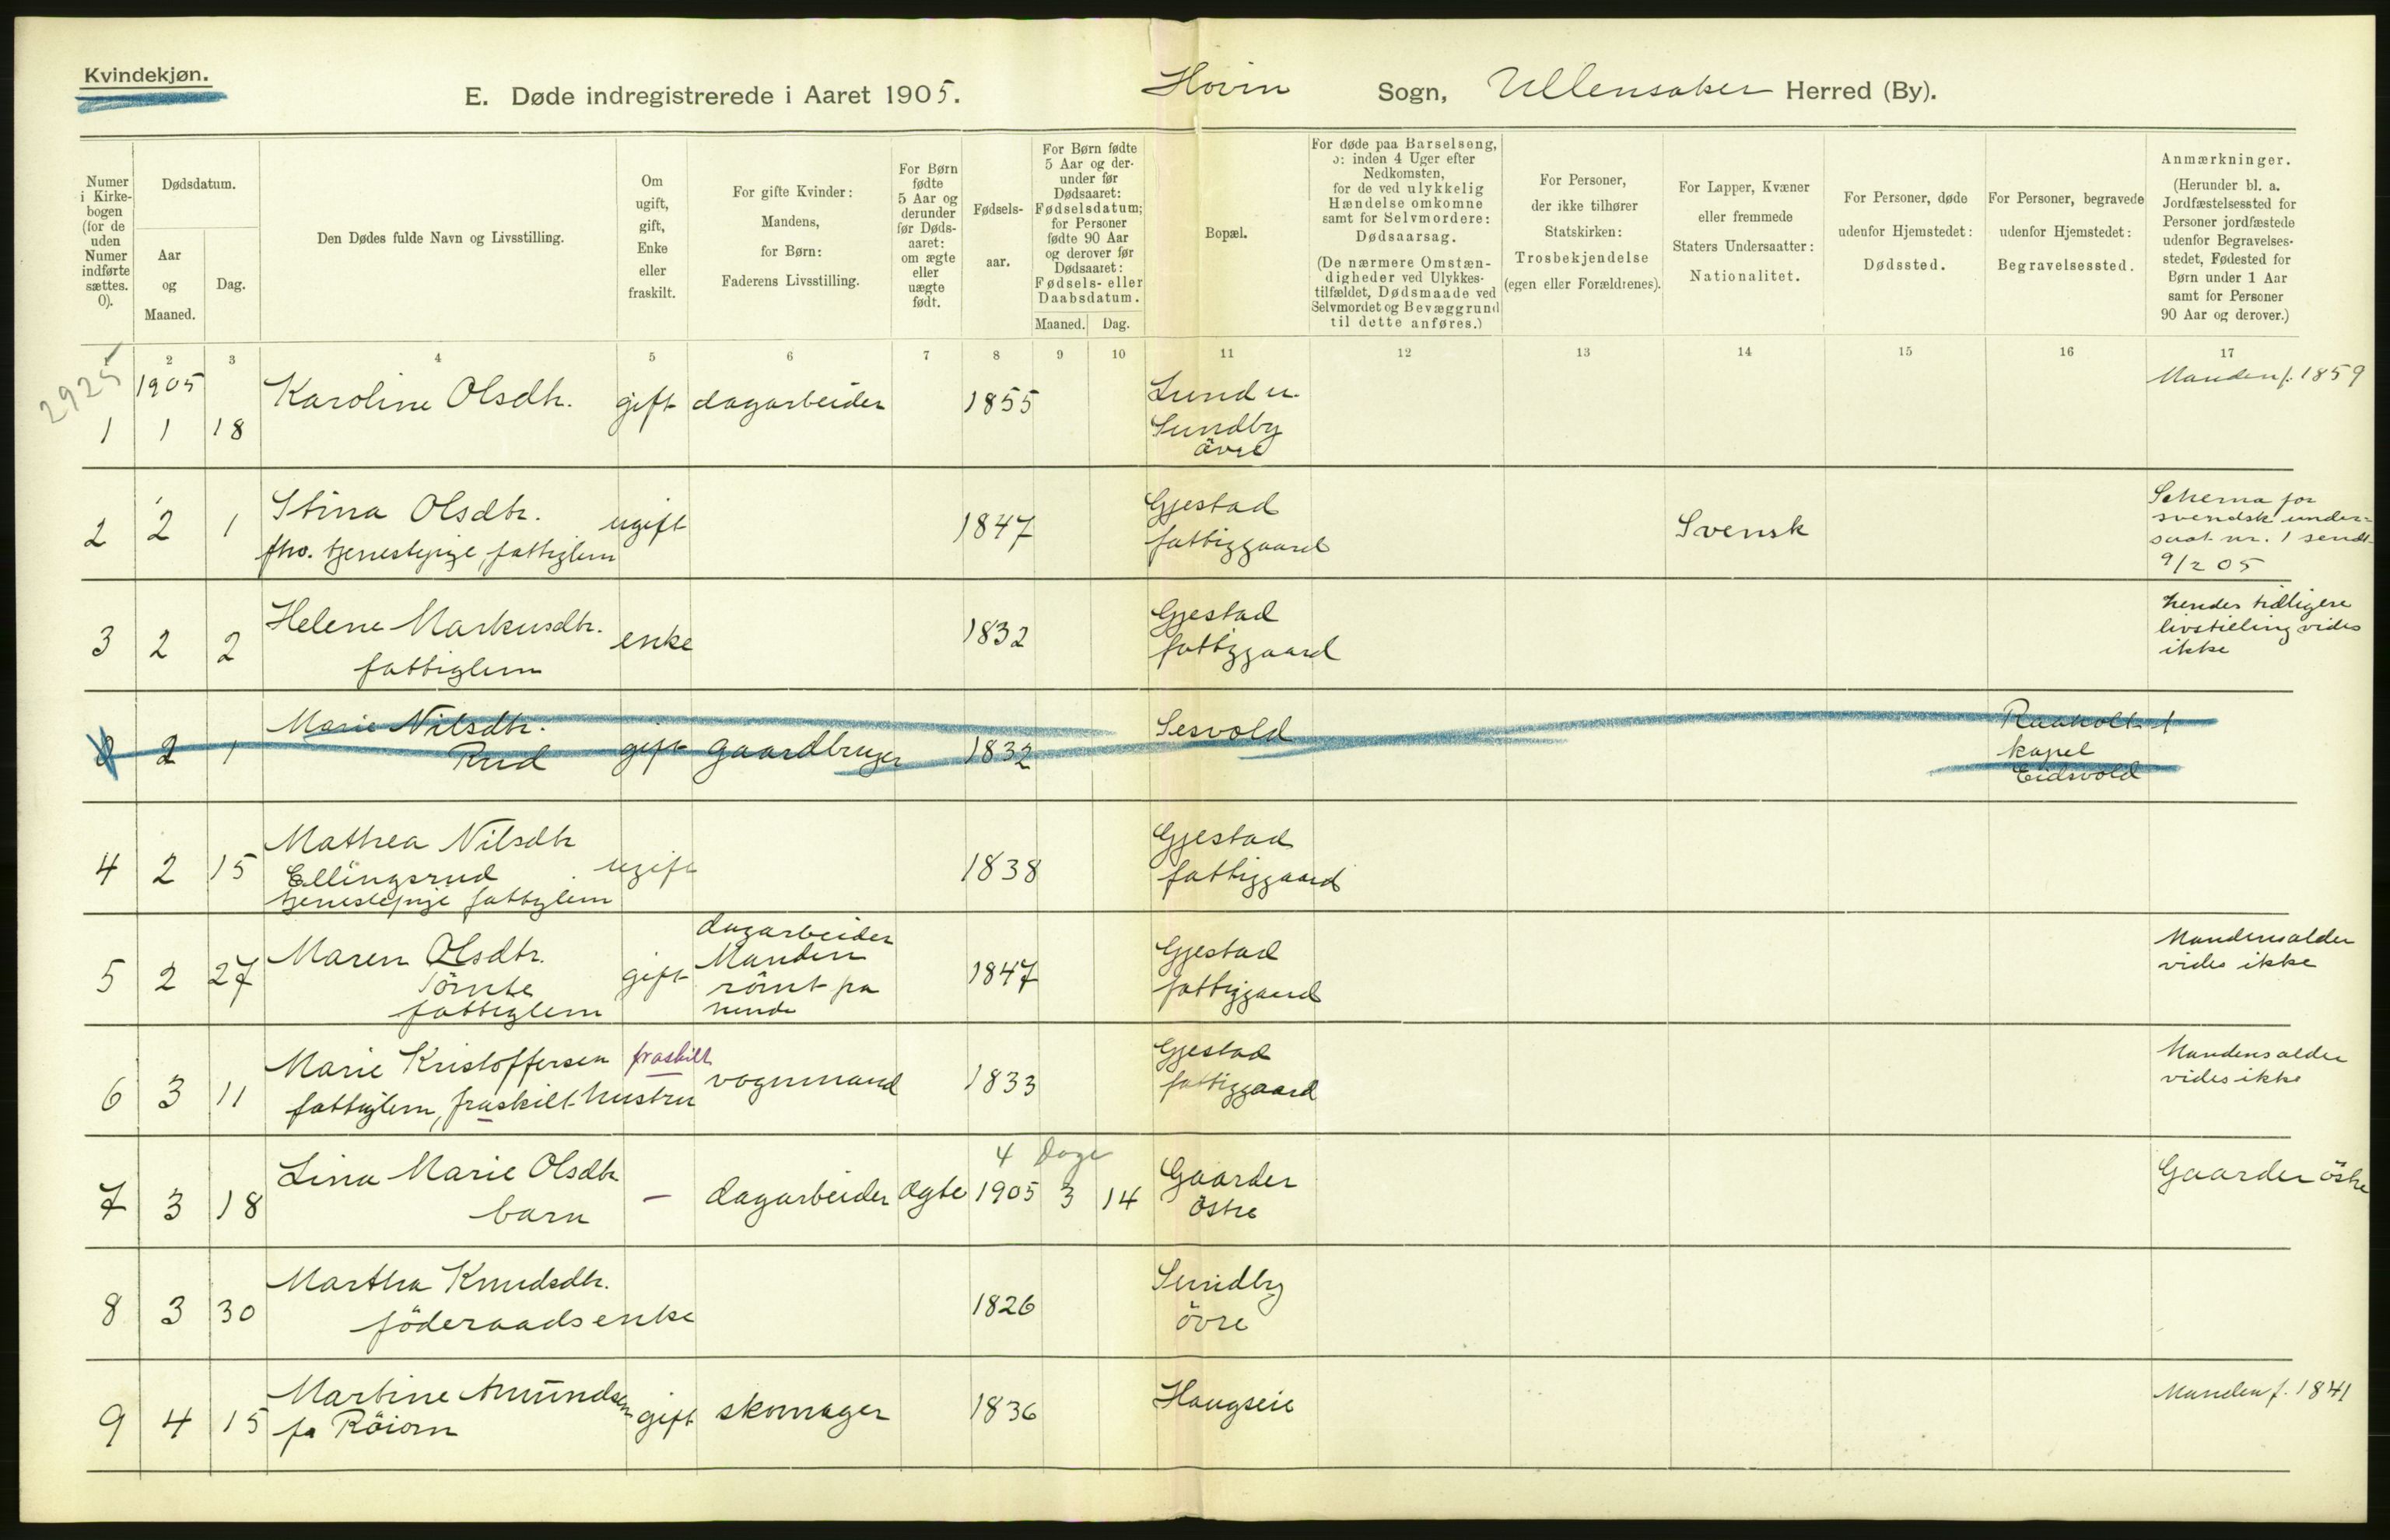 Kvindekjøn.
E. Døde indregistrerede i Aaret 1905. Hovin Sogn, Ullensaker Herred (By).
Numer i Kirke-bogen (for de uden Numer indførte sættes. 0).
Dødsdatum.
Aar og Maaned.
Dag.
Den Dødes fulde Navn og Livsstilling.
Om ugift, gift, Enke eller fraskilt.
For gifte Kvinder: Mandens, for Børn: Faderens Livsstilling.
For Børn fødte 5 Aar og derunder før Døds-aaret: om ægte eller uægte født.
Fødsels-aar.
For Børn fødte 5 Aar og der-under før Dødsaaret: Fødselsdatum; for Personer fødte 90 Aar og derover før Dødsaaret: Fødsels- eller Daabsdatum.
Maaned. Dag.
Bopæl.
For døde paa Barselseng, ɔ: inden 4 Uger efter Nedkomsten, for de ved ulykkelig Hændelse omkomne samt for Selvmordere: Dødsaarsag. (De nærmere Omstæn-digheder ved Ulykkes-tilfældet, Dødsmaade ved Selvmordet og Bevæggrund til dette anføres.)
For Personer, der ikke tilhører Statskirken: Trosbekjendelse (egen eller Forældrenes).
For Lapper, Kvæner eller fremmede Staters Undersaatter: Nationalitet.
For Personer, døde udenfor Hjemstedet: Dødssted.
For Personer, begravede udenfor Hjemstedet: Begravelsessted.
Anmærkninger. (Herunder bl. a. Jordfæstelsessted for Personer jordfæstede udenfor Begravelses-stedet, Fødested for Børn under 1 Aar samt for Personer 90 Aar og derover.)
1 2 3 4 5 6 7 8 9 10 11 12 13 14 15 16 17
2925
1905
1 1 18 Karoline Olsdtr. gift dagarbeider 1855 Lund u. Manden f. 1859
Sundby
övre
2 2 1 Stina Olsdtr. ugift 1847 Gjestad Svensk Schema for
fhv. tjenestepige, fattiglem fattiggaard svendsk under=
saat nr. 1 sendt
9/2 05
3 2 2 Helene Markusdtr. enke 1832 Gjestad hendes tidligere
fattiglem fattiggaard livstilling vides
ikke
2 1 Marie Nilsdtr. gift gaardbruger 1832 Sesvold Raaholt
Rud kapel
Eidsvold
4 2 15 Mathea Nilsdtr ugift 1838 Gjestad
Ellingsrud fattiggaard
tjenestepige fattiglem
5 2 27 Maren Olsdtr. gift dagarbeider 1847 Gjestad Mandens alder
Tömte Manden fattiggaard vides ikke
fattiglem römt fra
hende
6 3 11 Marie Kristoffersen fraskilt vognmand 1833 Gjestad Mandens alder
fattiglem, fraskilt hustru fattiggaard vides ikke
4 Dage
7 3 18 Lina Marie Olsdtr - dagarbeider ægte 1905 3 14 Gaarder Gaarder östre
barn östre
8 3 30 Martha Knudsdtr. 1826 Sundby
föderaadsenke övre
9 4 15 Martine Amundsen gift skomager 1836 Haugseie Manden f. 1841
fa Röiom